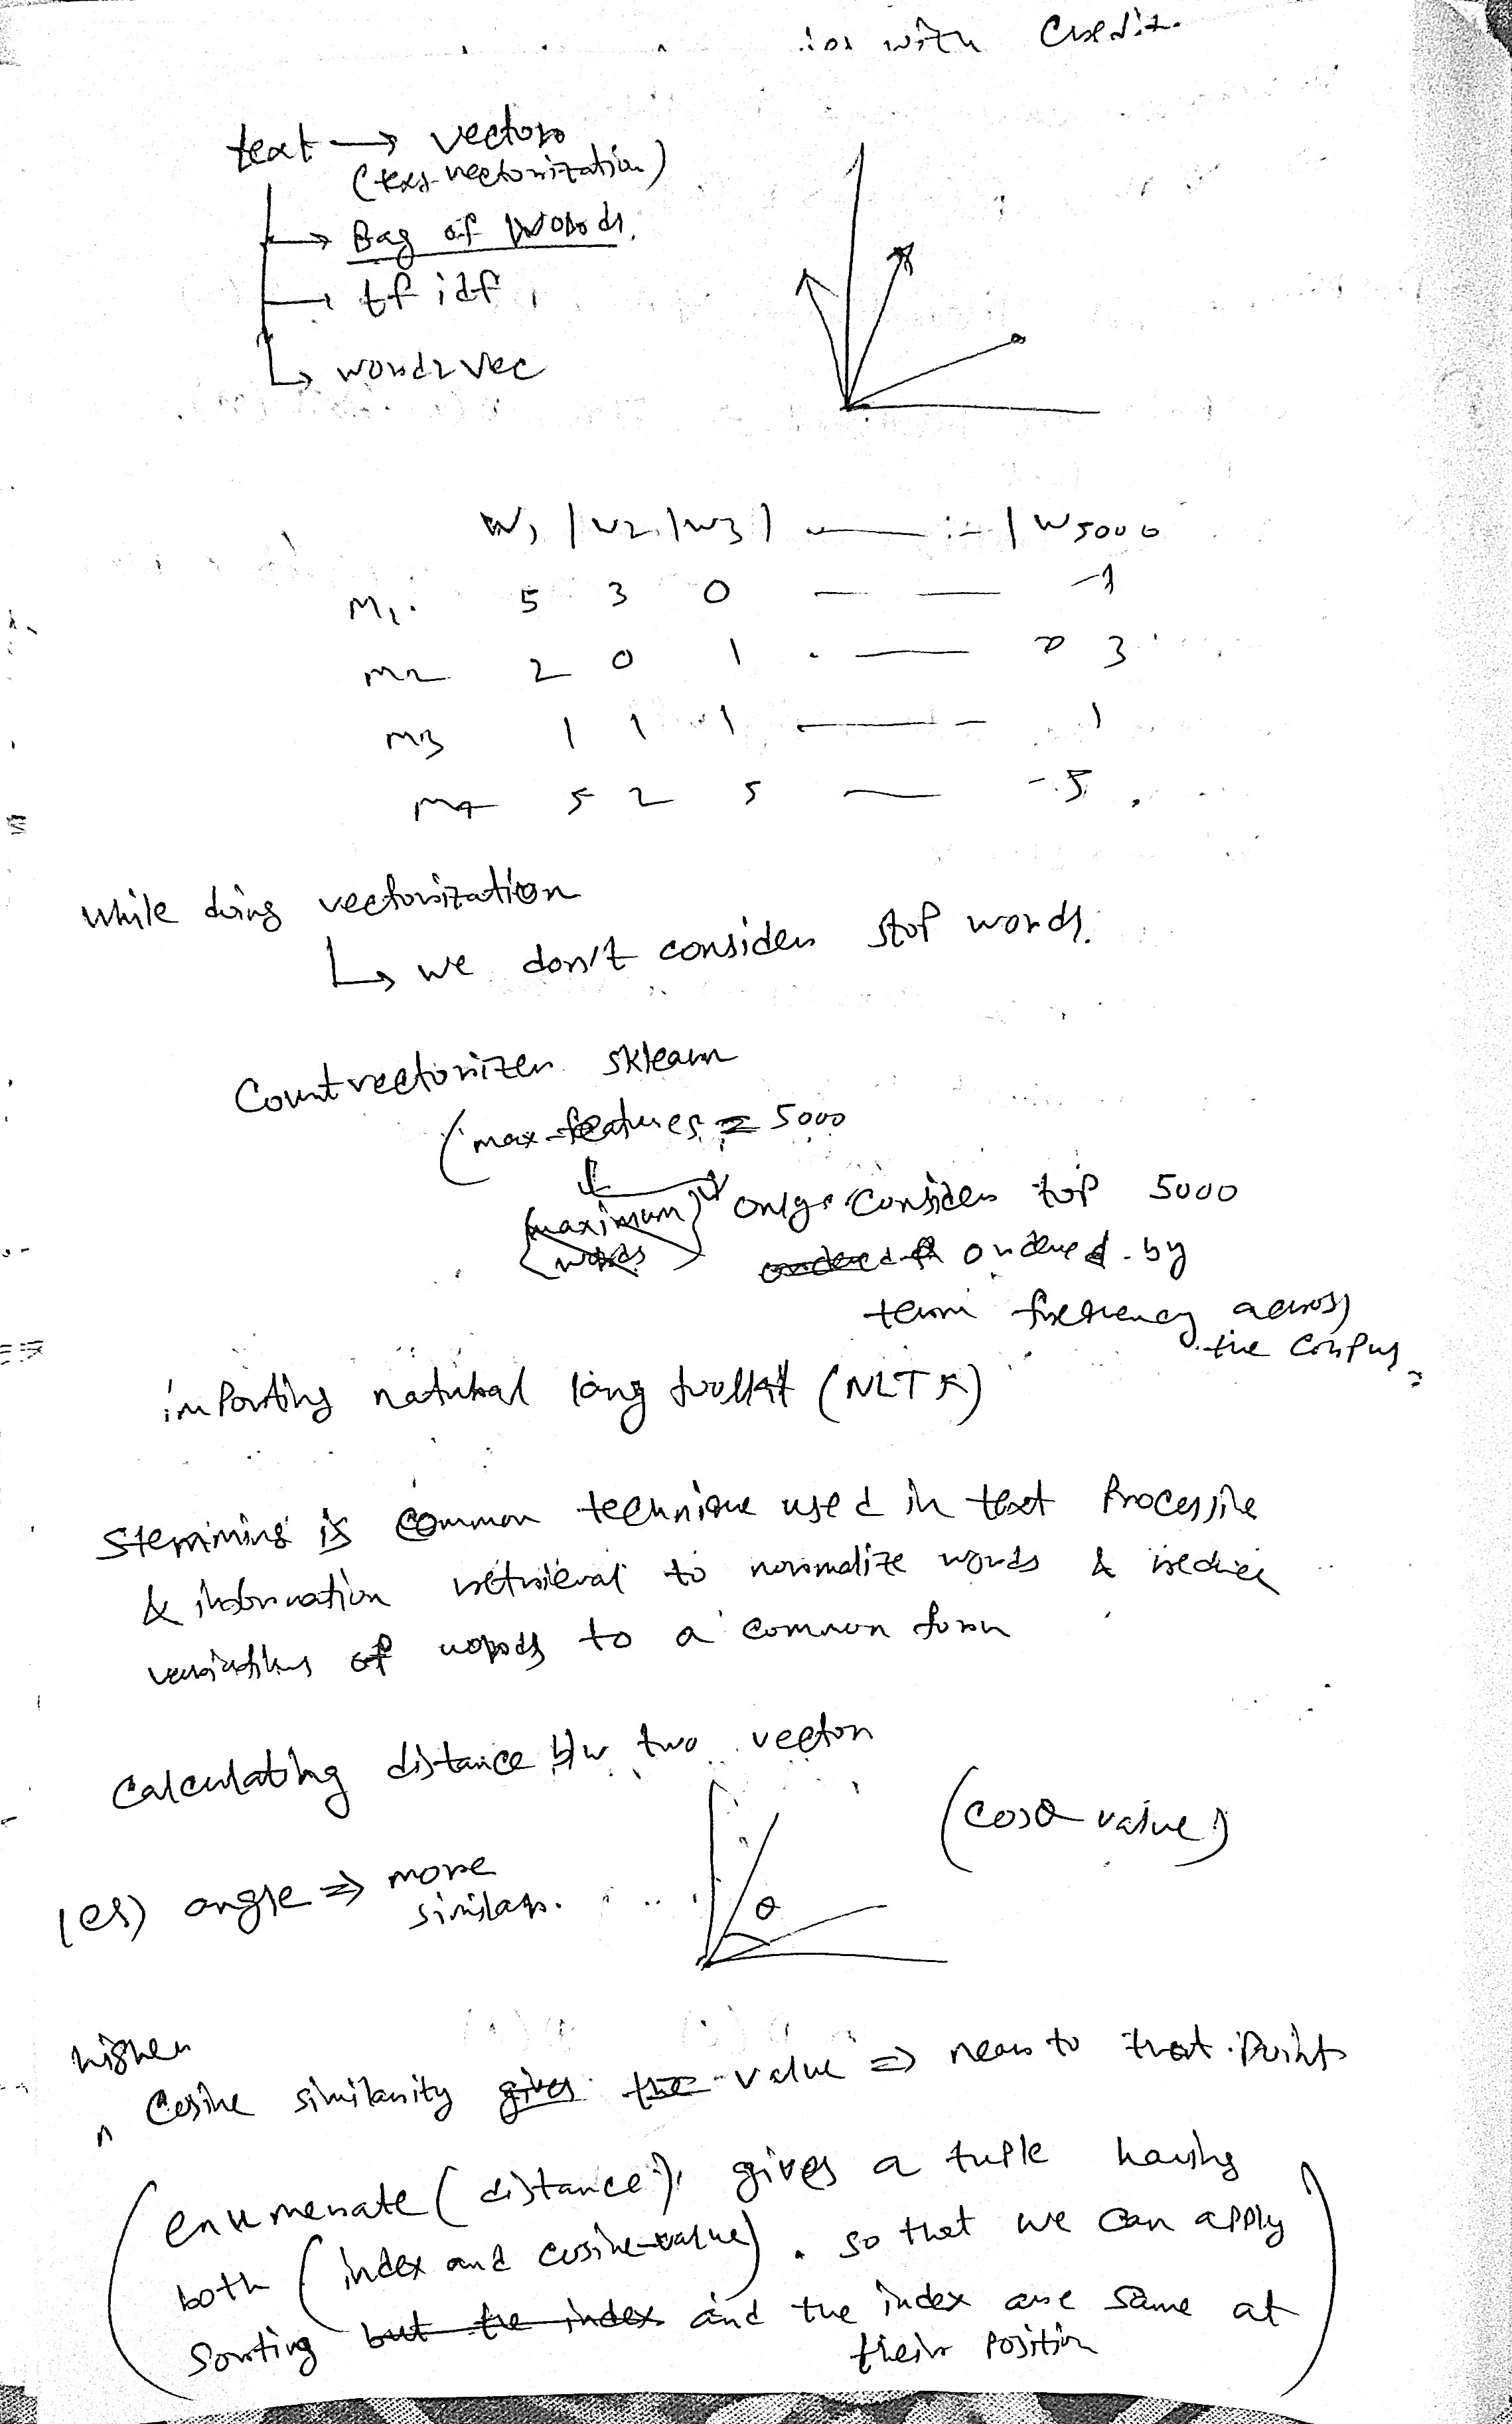 with Credit.
text → vectors
(text vectorization)
→ Bag of Words.
→ tf idf
↳ word2vec
W1 | W2 | W3 | — — | W5000
M1. 5 3 0 — — 1
M2 2 0 1 — 3
M3 1 1 1 — — 1
M4 5 2 5 — - 5
while doing vectorization
↳ we don't consider stop words.
Countvectorizer sklearn
(max-features = 5000
(maximum words) only consider top 5000
ordered by
term frequency across
the corpus
importing natural lang toolkit (NLTK)
Stemming is common technique used in text Processing
& information retrieval to normalize words & reduce
variations of words to a common form
Calculating distance b/w two vector
(cosθ value)
less angle ⇒ more
similar.
θ
higher
Cosine similarity gives the value ⇒ near to that point
(enumerate(distance), gives a tuple having
both (index and cosine-value). so that we can apply
Sorting but the index and the index are same at
their position)